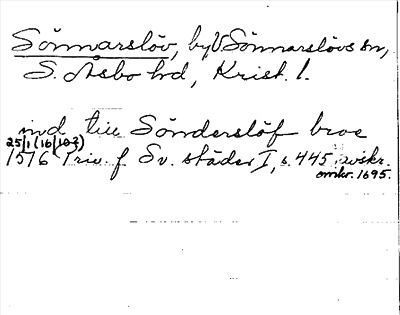 Sönnarslöv, by, V. Sönnarslövs sn,
S. Åsbo hd, Krist. l.
ind till Sönderslöf broe
25/1 (16/103)
1576 Priv. f Sv. städer I, s. 445, avskr.
omkr. 1695.